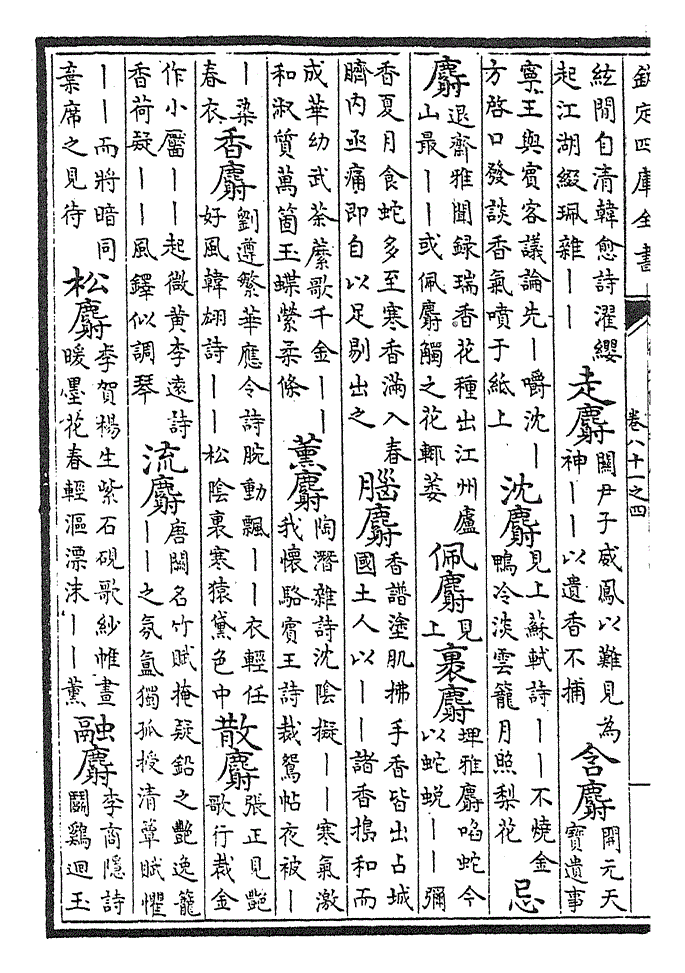 欽定四庫全書
卷八十一之四
絃閒自清韓愈詩濯纓
起江湖綴珮雜丨丨
走麝
關尹子威鳳以難見為
神丨丨以遺香不捕
含麝
開元天
寶遺事
寧王與賓客議論先丨嚼沈丨
方啓口發談香氣噴于紙上
沈麝
見上蘇軾詩丨丨不燒金
鴨冷淡雲籠月照梨花
忌
麝
退齋雅聞錄瑞香花種出江州廬
山最丨丨或佩麝觸之花輒萎
佩麝
見
上
裹麝
埤雅麝啗蛇今
以蛇蛻丨丨彌
香夏月食蛇多至寒香滿入春
臍内亟痛即自以足剔出之
腦麝
香譜塗肌拂手香皆出占城
國土人以丨丨諸香搗和而
成華幼武荼䕷歌千金丨丨
和淑質萬箇玉蝶縈柔條
薰麝
陶潛雜詩沈陰擬丨丨寒氣激
我懷駱賓王詩裁鴛帖夜被丨
丨染
春衣
香麝
劉遵繁華應令詩腕動飄丨丨衣輕任
好風韓翃詩丨丨松陰裏寒猿黛色中
散麝
張正見艷
歌行裁金
作小靨丨丨起微黃李遠詩
香荷疑丨丨風鐸似調琴
流麝
唐闕名竹賦掩疑鉛之艷逸籠
丨丨之氛氳獨孤授清簟賦懼
丨丨而將暗同
棄席之見待
松麝
李賀楊生紫石硯歌紗帷晝
暖墨花春輕漚漂沫丨丨薰
融麝
李商隱詩
鬬鷄迴玉